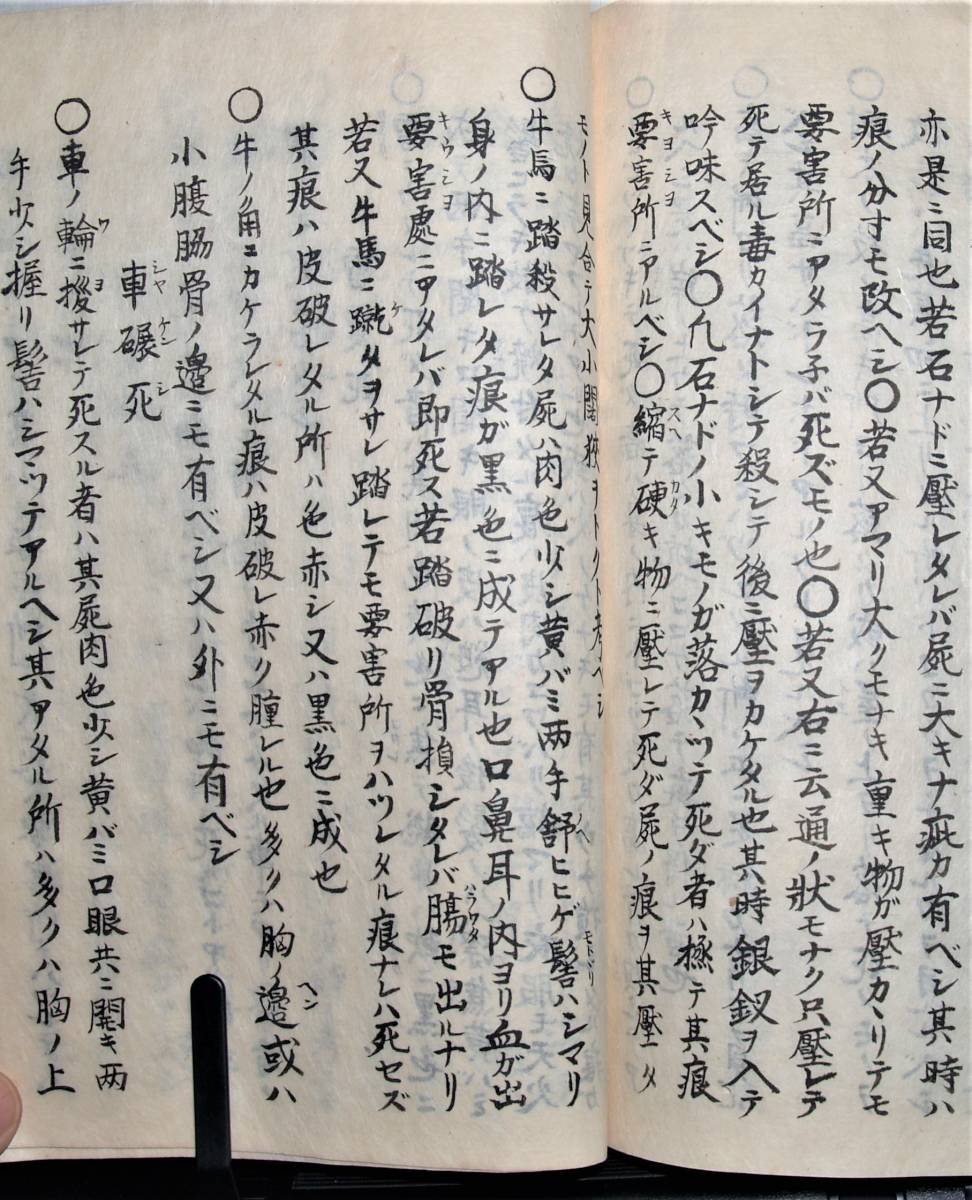 亦是ニ同也若石ナドニ壓レタレバ屍ニ大キナ疵カ有ベシ其時ハ
痕ノ分寸モ改ヘシ〇若又アマリ大クモナキ重キ物ガ壓カヽリテモ
要害所ニアタラ子バ死ズモノ也〇若又右ニ云通ノ狀モナク只壓レテ
死テ居ル毒カイナトシテ殺シテ後ニ壓ヲカケタル也其時銀釵ヲ入テ
吟味スベシ〇凢石ナドノ小キモノガ落カヽツテ死ダ者ハ極テ其痕
要害所ニアルベシ〇縮テ硬キ物ニ壓レテ死ダ屍ノ痕ヲ其壓タ
モノト見合テ大小闊狹ヲトクト考ベシ
〇牛馬ニ踏殺サレタ屍ハ肉色少シ黄バミ両手舒ヒヒゲ髻ハシマリ
身ノ内ニ踏レタ痕ガ黒色ニ成テアル也口鼻耳ノ内ヨリ血ガ出
要害處ニアタレバ即死ス若踏破リ骨損シタレバ膓モ出ルナリ
若又牛馬ニ蹴タヲサレ踏レテモ要害所ヲハツレタル痕ナレハ死セズ
其痕ハ皮破レタル所ハ色赤シ又ハ黒色ニ成也
〇牛ノ角エカケラレタル痕ハ皮破レ赤ク腫レル也多クハ胸ノ邉或ハ
小腹脇骨ノ邉ニモ有ベシ又ハ外ニモ有ベシ
車碾死
〇車ノ輪ニ撥サレテ死スル者ハ其屍肉色少シ黄バミ口眼共ニ開キ両
手少シ握リ髻ハシマツテアルヘシ其アタル所ハ多クハ胸ノ上